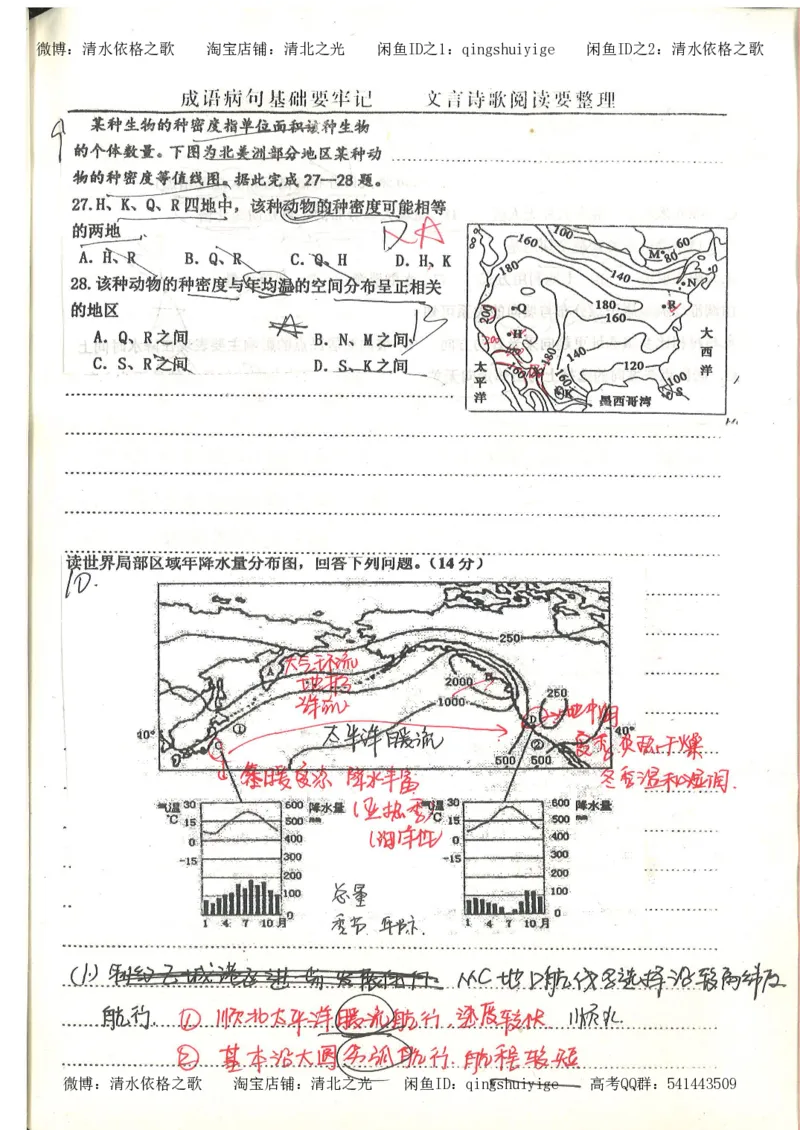 微博：清水依格之歌 淘宝店铺：清北之光 闲鱼ID之1：qingshuiyige 闲鱼ID之2：清水依格之歌
成语病句基础要牢记 文言诗歌阅读要整理
某种生物的种密度指单位面积该种生物
的个体数量。下图为北美洲部分地区某种动
物的种密度等值线图。据此完成27—28题。
27.H、K、Q、R四地中，该种动物的种密度可能相等
的两地
A. H、R B. Q、R C. Q、H D. H、K
28.该种动物的种密度与年均温的空间分布呈正相关
的地区
A. Q、R之间 B. N、M之间
C. S、R之间 D. S、K之间
160 100 M 60 80
180 140 N
200 Q 180 R
H 160
大西洋
180 140
太平洋 160 120 100
K 墨西哥湾 S
读世界局部区域年降水量分布图，回答下列问题。（14分）
10.
250
A 大气环流
地形
洋流
2000 B
1000 250
D 地中海
40° ① 太平洋暖流 ② 40°
C 500 500
夏季炎热干燥
冬季温和湿润.
降水丰富
气温 30 600 降水量 气温 30 600 降水量
℃ 15 500 mm ℃ 15 500 mm
0 400 0 400
-15 300 -15 300
200 200
100 100
0 0
1 4 7 10月 1 4 7 10月
总量
季节 年际.
(1) 航线选择沿较高纬度
航行. ① 顺北太平洋暖流航行,速度较快 顺水
② 基本沿大圆航行.航程较短
微博：清水依格之歌 淘宝店铺：清北之光 闲鱼ID：qingshuiyige 高考QQ群：541443509